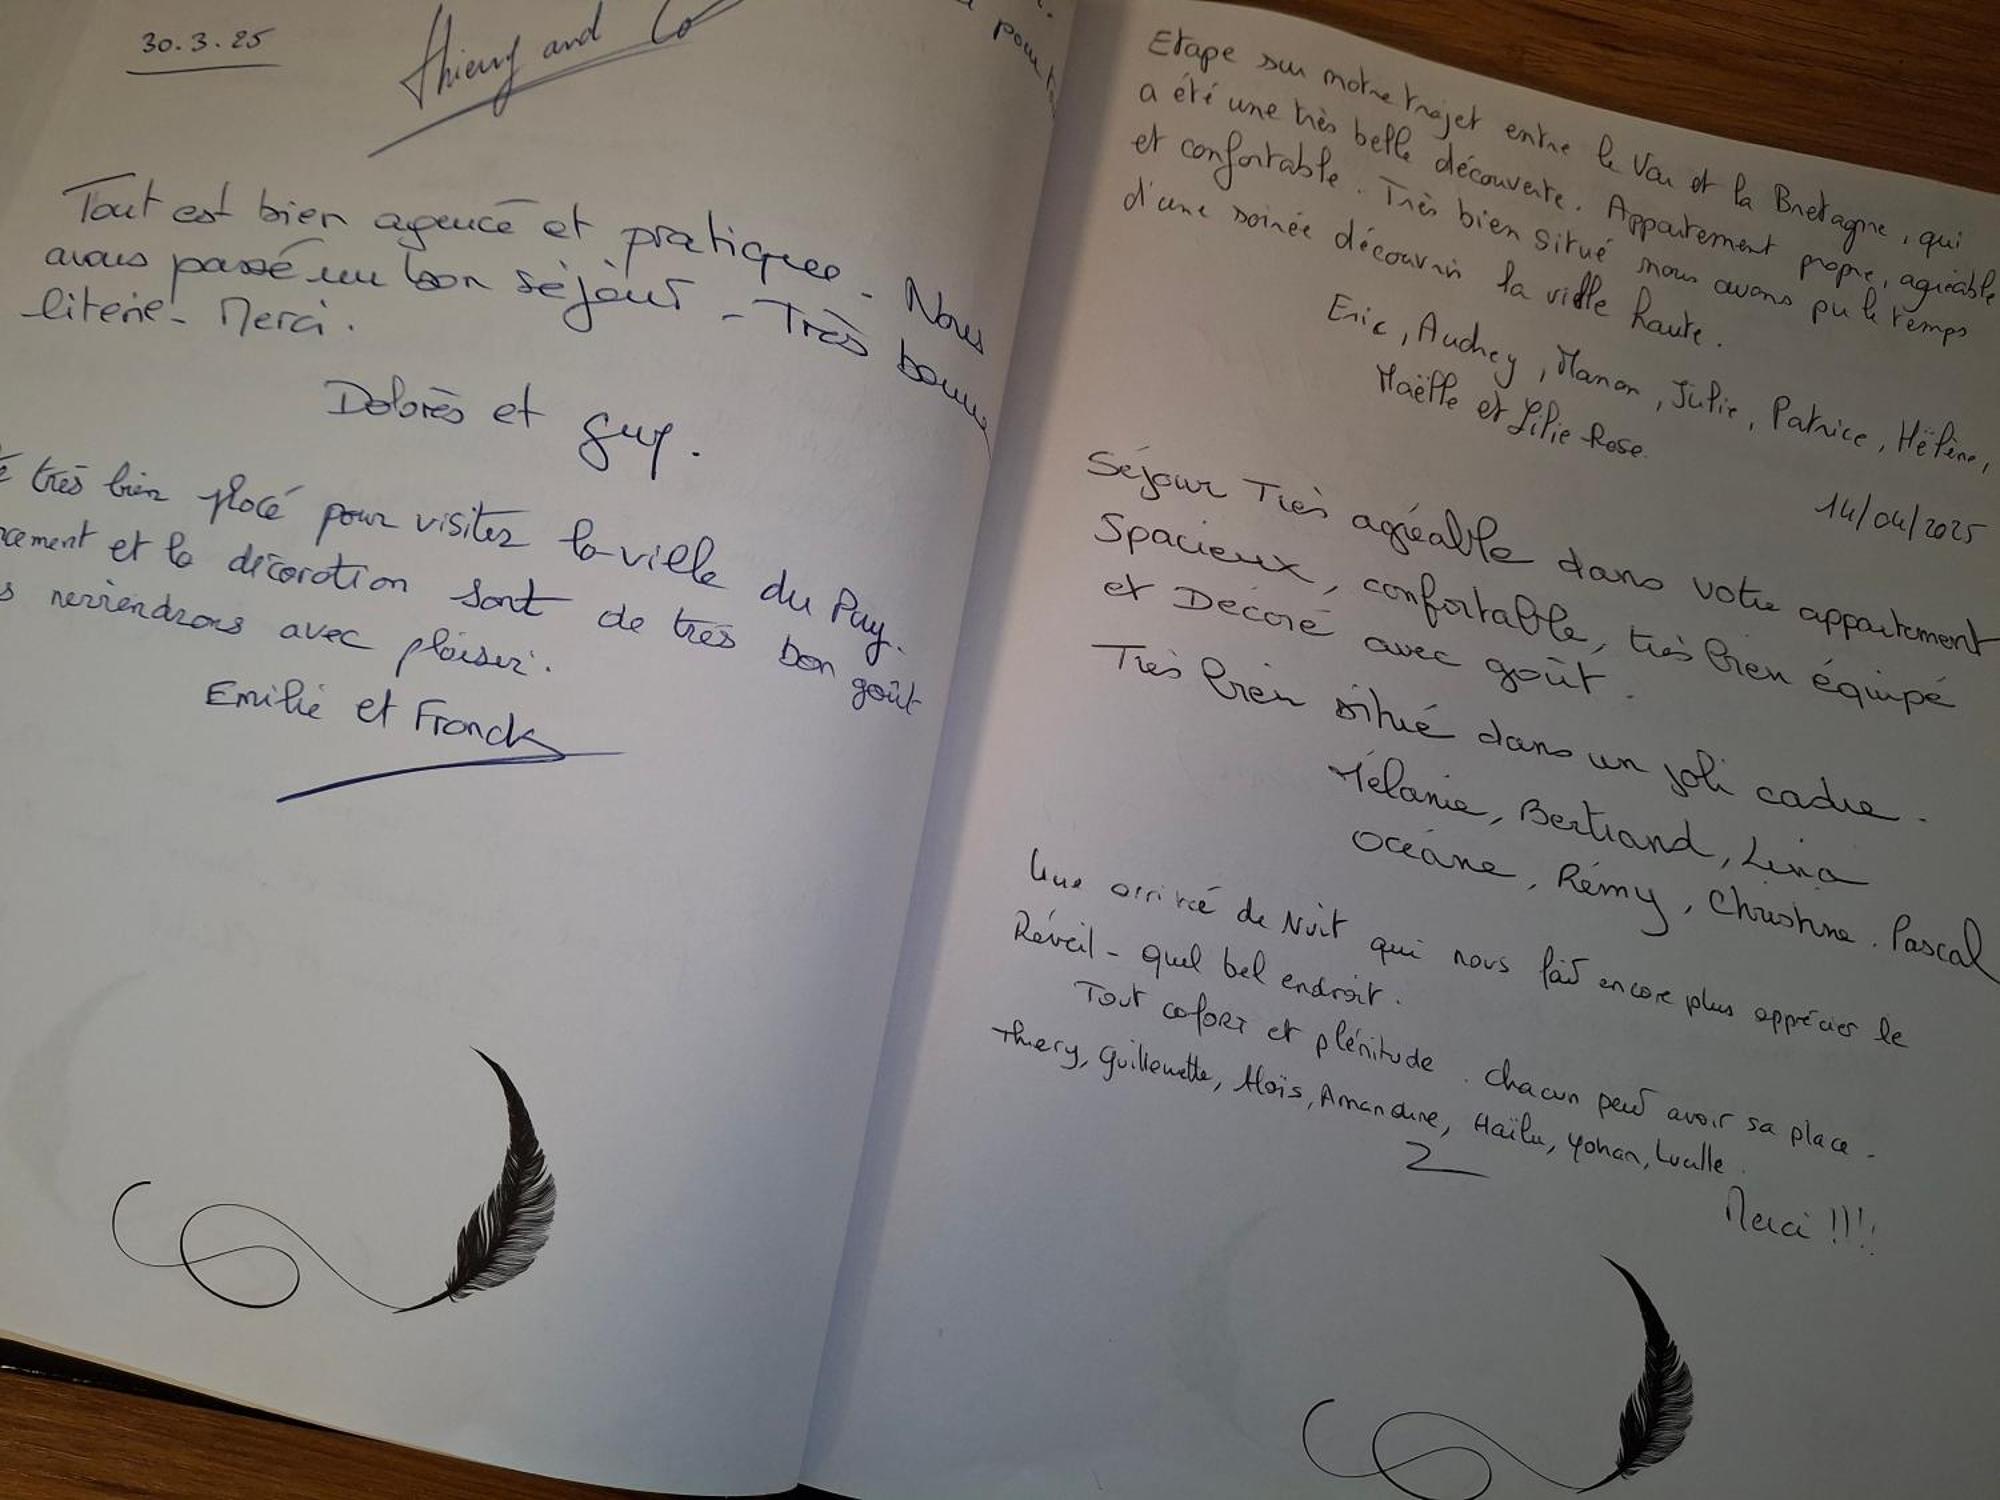 pour
30.3.25
Thierry and Co
Tout est bien agencé et pratiques - Nous
avons passé un bon séjour - Très bonne
literie - Merci.
Dolorès et Guy.
très bien placé pour visiter la ville du Puy.
cement et la décoration sont de très bon goût
s reviendrons avec plaisir.
Emilie et Franck
Etape sur notre trajet entre le Var et la Bretagne, qui
a été une très belle découverte. Appartement propre, agréable
et confortable. Très bien situé nous avons pu le temps
d'une soirée découvrir la ville haute.
Eric, Audrey, Manon, Julie, Patrice, Hélène,
Maëlle et Lilie-Rose.
14/04/2025
Séjour Très agréable dans votre appartement
Spacieux, confortable, très bien équipé
et Décoré avec goût.
Très bien situé dans un joli cadre.
Mélanie, Bertrand, Lina
Océane, Rémy, Christine. Pascal
Une arrivée de Nuit qui nous fait encore plus apprécier le
Réveil - quel bel endroit.
Tout cofort et plénitude. chacun peut avoir sa place.
Thiery, Guillemette, Aloïs, Amandine, Yohan,
Merci !!!!